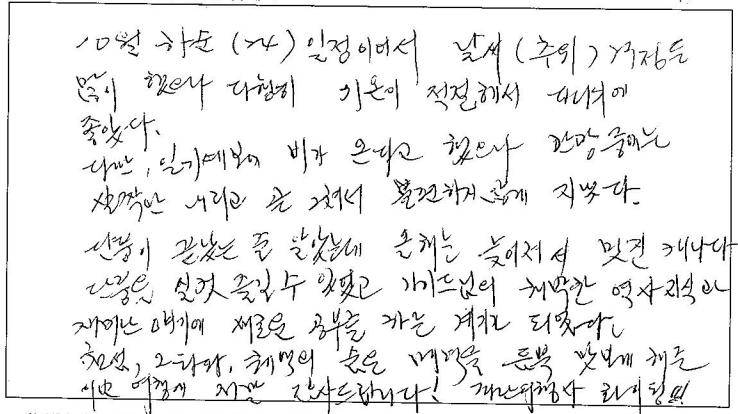 10월 하순 (24) 일정이어서 날씨 (추위) 걱정도
많이 했으나 다행히 기온이 적절해서 다니기에
좋았다.
다만, 일기예보에 비가 온다고 했으나 관광 중에는
살짝만 내리고 곧 그쳐서 불편하지 않게 지냈다.
단풍이 끝났는 줄 알았는데 올해는 늦어져서 멋진 캐나다
단풍을 실컷 즐길 수 있었고 가이드님의 해박한 역사지식과
재미난 얘기에 새로운 공부를 하는 계기가 되었다.
천섬, 오타와, 퀘백의 숨은 매력을 듬뿍 맛보게 해준
이번 여행에 정말 감사드립니다! 캐나다여행사 화이팅!!